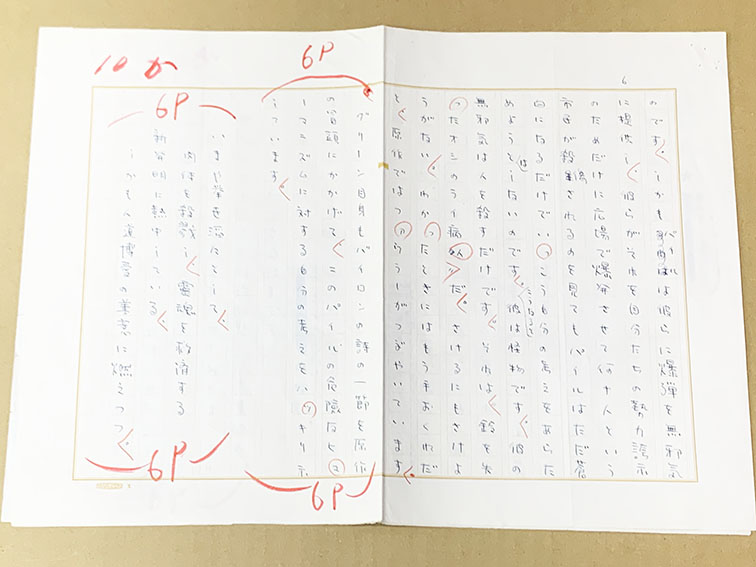 6
のです。しかもパイルは彼らに爆弾を無邪気
に提供し、彼らがそれを自分たちの勢力誇示
のためだけに広場で爆発させて何十人という
市民が殺されるのを見てもパイルはただ蒼
白になるだけでいっこう自分の考えをあらた
めようとはしないのです。彼は怪物です。彼の
無邪気は人を殺すだけです。それは、鈴を失
ったオシのライ病人だ。さけるにもさけよ
うがない、わかったときにはもう手おくれだ
と、原作ではファウラーがつぶやいています。
グリーン自身もバイロンの詩の一節を原作
の冒頭にかかげて、このパイルの危険なヒュ
ーマニズムに対する自分の考えをハッキリ示
しています。
いまや挙を深にして、
肉体を殺戮し、霊魂を救済する
新発明に熱中している、
しかも人道博愛の善意に燃えつつ、
10 か
6P
6P
6P
6P